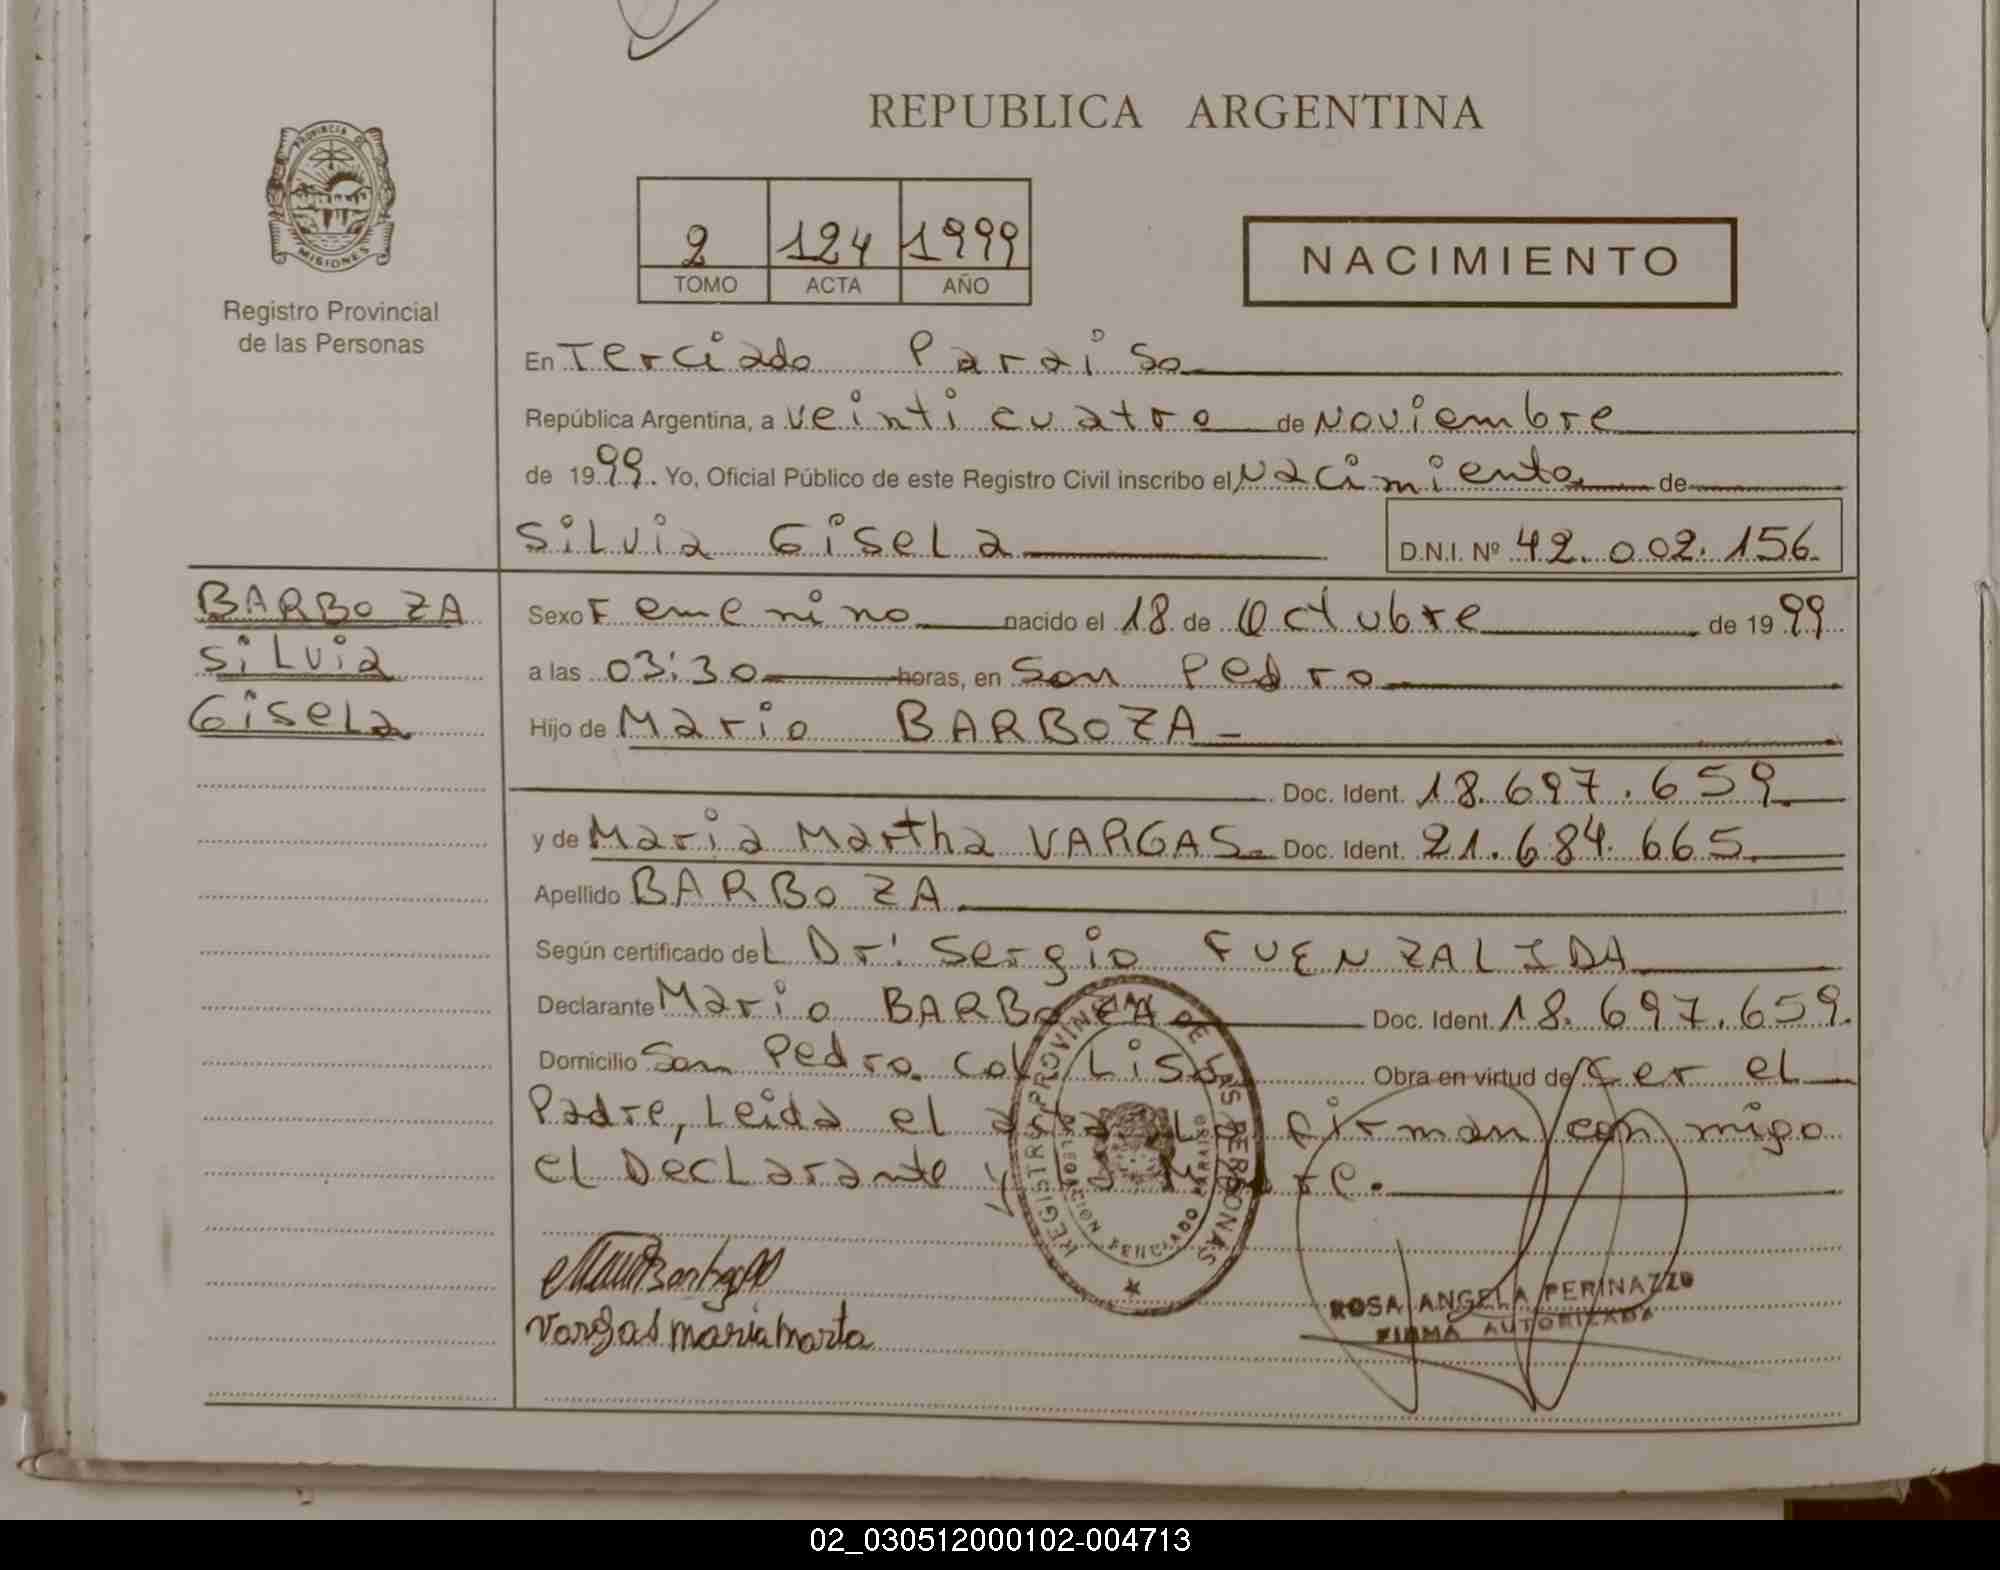 REPUBLICA ARGENTINA
PROVINCIA DE
MISIONES
Registro Provincial
de las Personas
2 124 1999
TOMO ACTA AÑO
NACIMIENTO
En Terciado Paraiso
República Argentina, a veinticuatro de Noviembre
de 1999. Yo, Oficial Público de este Registro Civil inscribo el Nacimiento de
Silvia Gisela D.N.I. Nº 42.002.156
BARBOZA
Silvia
Gisela
Sexo Femenino nacido el 18 de Octubre de 1999
a las 03:30 horas, en San Pedro
Hijo de Mario BARBOZA
Doc. Ident. 18.697.659
y de Maria Martha VARGAS. Doc. Ident. 21.684.665
Apellido BARBOZA
Según certificado del Dr: Sergio FUENZALIDA
Declarante Mario BARBOZA Doc. Ident. 18.697.659.
Domicilio San Pedro. Col. Lisa Obra en virtud de Ser el
Padre, Leida el acta La firman conmigo
el Declarante y La Madre.
REGISTRO PROVINCIAL DE LAS PERSONAS
Vargas maria marta
ROSA ANGELA PERINAZZO
FIRMA AUTORIZADA
02_030512000102-004713